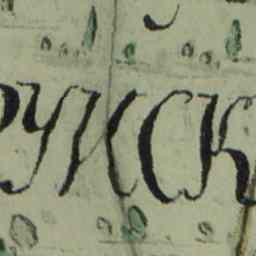 РУЙСК